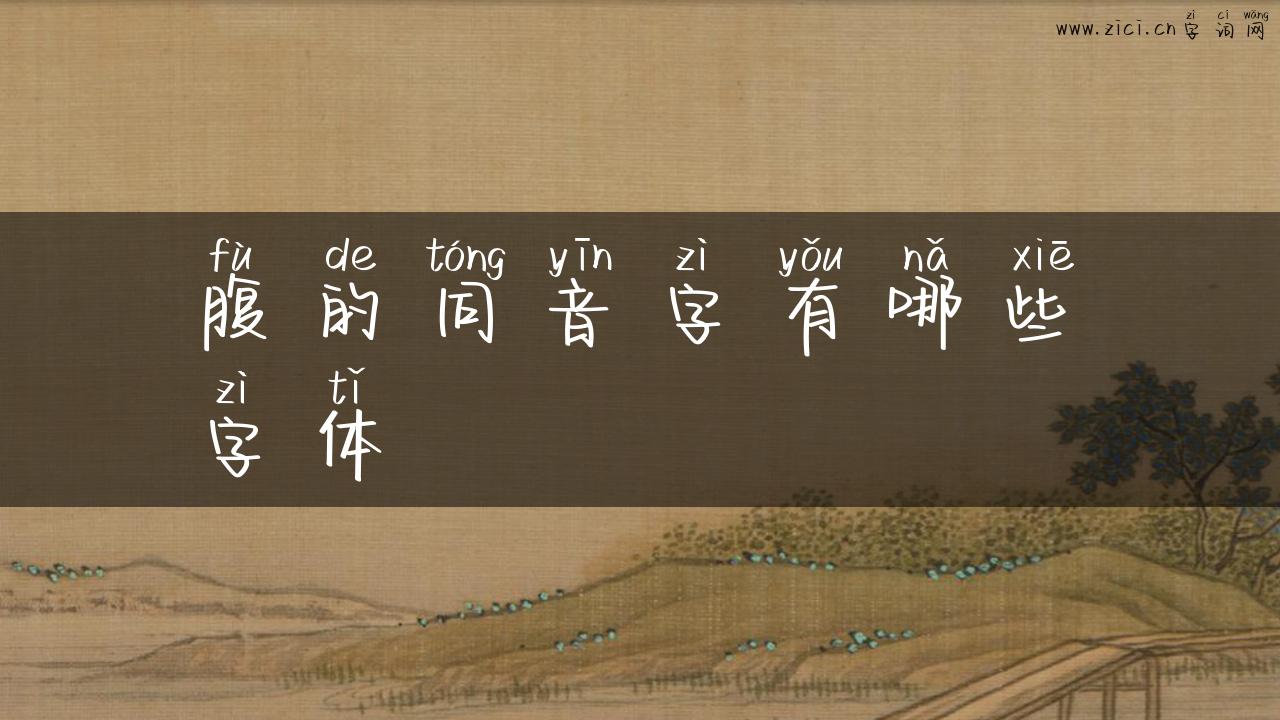 zì cí wǎng
www.zici.cn 字 词 网
fù de tóng yīn zì yǒu nǎ xiē
腹 的 同 音 字 有 哪 些
zì tǐ
字 体